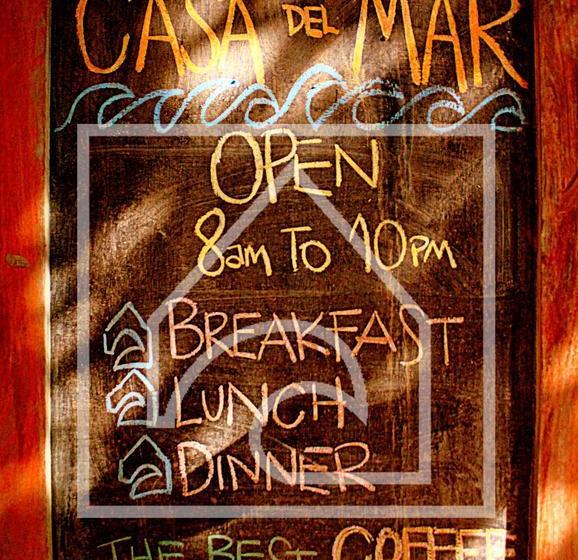 CASA DEL MAR
OPEN
8am TO 10PM
BREAKFAST
LUNCH
DINNER
THE BEST COFFEE